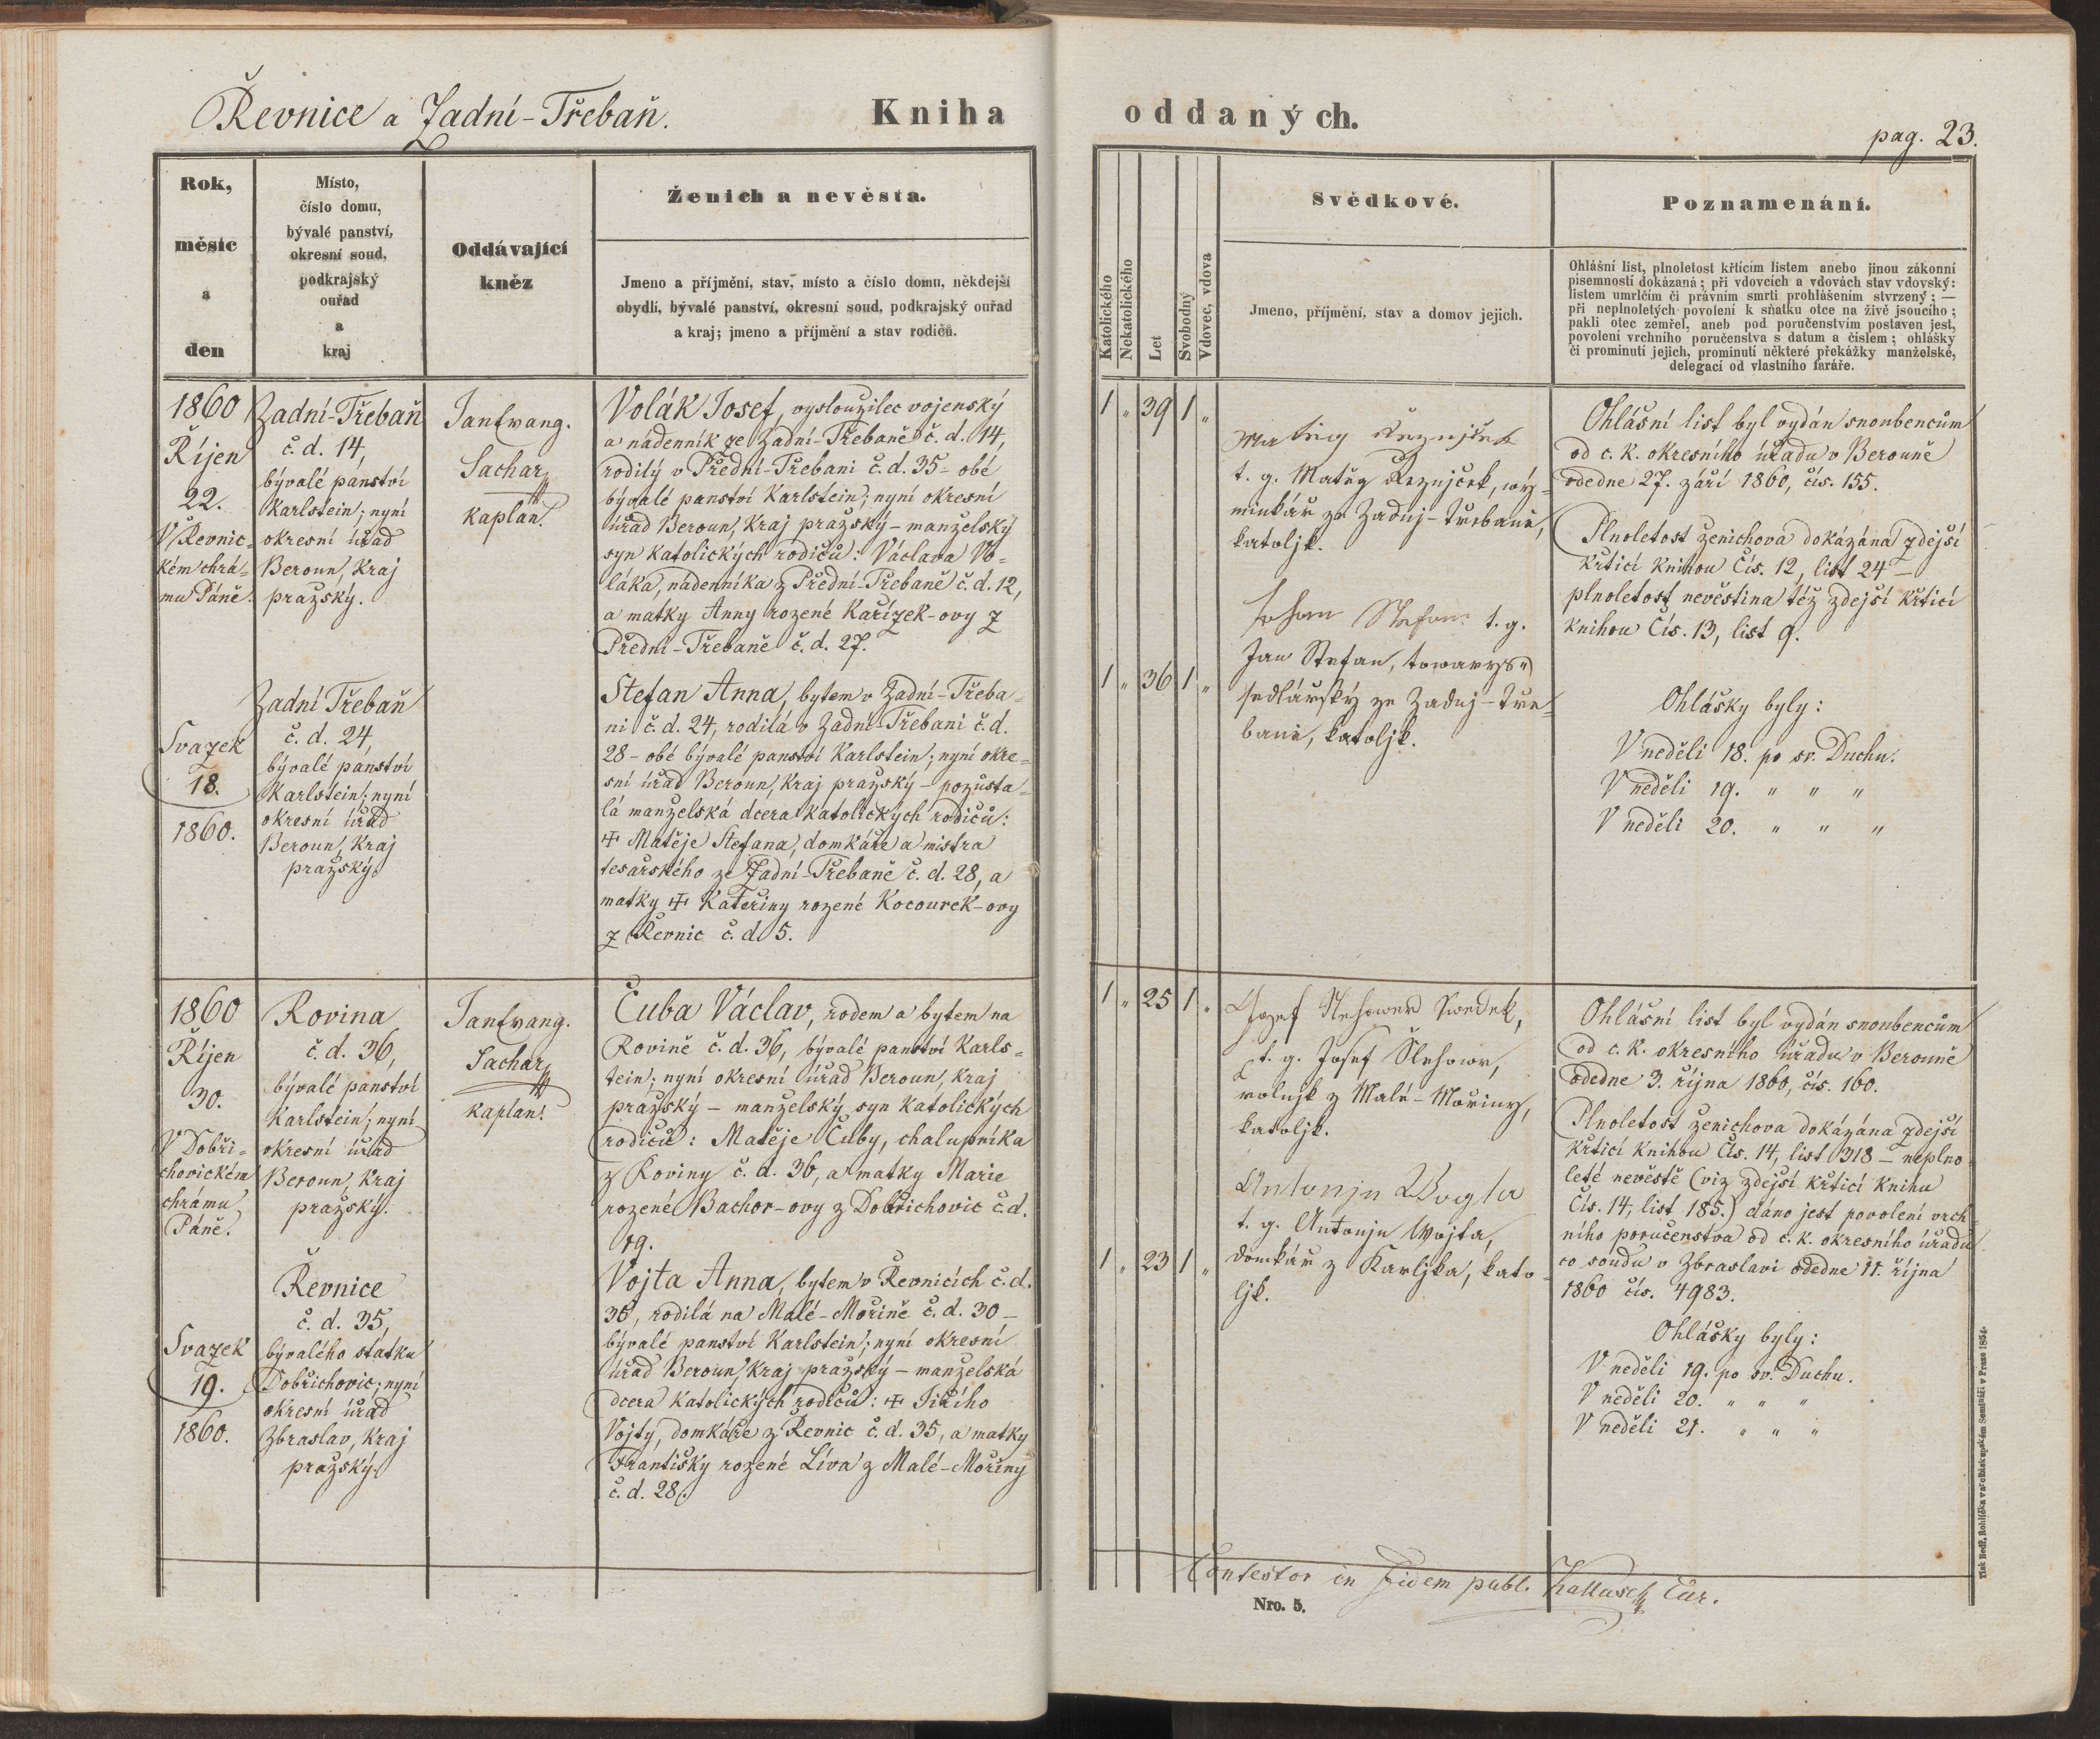 Řevnice a Zadní-Třebaň.
Kniha
Rok,
měsíc
a
den
Místo,
číslo domu,
bývalé panství,
okresní soud,
podkrajský
ouřad
a
kraj
Oddávající
kněz
Ženich a nevěsta.
Jmeno a příjmění, stav, místo a číslo domu, někdejší
obydlí, bývalé panství, okresní soud, podkrajský ouřad
a kraj; jmeno a příjmění a stav rodičů.
1860
Říjen
22.
V Řevnic-
kém chrá-
mu Páně.
Svazek
18.
1860.
Zadní-Třebaň
č. d. 14,
bývalé panství
Karlstein; nyní
okresní úřad
Beroun, kraj
pražský.
Zadní Třebaň
č. d. 24,
bývalé panství
Karlstein; nyní
okresní úřad
Beroun, kraj
pražský.
Jan Evang.
Sachar,
kaplan.
Volák Josef, vysloužilec vojenský
a nádenník ze Zadní-Třebaně č. d. 14,
rodilý v Přední-Třebani č. d. 35- obé
bývalé panství Karlstein; nyní okresní
úřad Beroun, kraj pražský – manželský
syn katolických rodičů: Václava Vo-
láka, nádenníka z Přední-Třebaně č. d. 12,
a matky Anny rozené Kařízek-ovy z
Přední-Třebaně č. d. 27.
Stefan Anna, bytem v Zadní-Třeba-
ni č. d. 24, rodilá v Zadní-Třebani č. d.
28 – obé bývalé panství Karlstein; nyní okre-
sní úřad Beroun, kraj pražský – pozůsta-
lá manželská dcera katolických rodičů:
‡ Matěje Stefana, domkáře a mistra
tesařského ze Zadní-Třebaně č. d. 28, a
matky ‡ Kateřiny rozené Kocourek-ovy
z Řevnic č. d. 5.
1860
Říjen
30.
V Dobři-
chovickém
chrámu
Páně.
Svazek
19.
1860.
Rovina
č. d. 36,
bývalé panství
Karlstein; nyní
okresní úřad
Beroun, kraj
pražský.
Řevnice
č. d. 35,
bývalého statku
Dobřichovic; nyní
okresní úřad
Zbraslav, kraj
pražský.
Jan Evang.
Sachar,
kaplan.
Čuba Václav, rodem a bytem na
Rovině č. d. 36, bývalé panství Karls-
tein; nyní okresní úřad Beroun, kraj
pražský – manželský syn katolických
rodičů: Matěje Čuby, chalupníka
z Roviny č. d. 36, a matky Marie
rozené Bachor-ovy z Dobřichovic č. d.
19.
Vojta Anna, bytem v Řevnicích č. d.
35, rodilá na Malé-Mořině č. d. 30 –
bývalé panství Karlstein; nyní okresní
úřad Beroun, kraj pražský – manželská
dcera katolických rodičů: ‡ Jiřího
Vojty, domkáře z Řevnic č. d. 35, a matky
Františky rozené Líva z Malé-Mořiny
č. d. 28.
oddaných.
pag. 23.
Katolického
Nekatolického
Let
Svobodný
Vdovec, vdova
Svědkové.
Jmeno, příjmění, stav a domov jejich.
Poznamenání.
Ohlášní list, plnoletost křtícím listem anebo jinou zákonní
písemností dokázaná; při vdovcích a vdovách stav vdovský:
listem umrlčím či právním smrti prohlášením stvrzený; —
při neplnoletých povolení k sňatku otce na živě jsoucího;
pakli otec zemřel, aneb pod poručenstvím postaven jest,
povolení vrchního poručenstva s datum a číslem; ohlášky
či prominutí jejich, prominutí některé překážky manželské,
delegací od vlastního faráře.
1 " 39 1 "
Matieg Rezniček
t. g. Matěg Řeznjček, wýz-
minkář ze Zadnj-Třebaně,
katoljk.
Johan Stefan t. g.
Jan Stefan, towaryš
sedlářský ze Zadnj-Tře-
baně, katoljk.
1 " 36 1 "
Ohlášní list byl vydán snoubencům
od c. k. okresního úřadu v Berouně
odedne 27. září 1860, čís. 155.
Plnoletost ženichova dokázána zdejší
křticí knihou Čís. 12, list 24 –
plnoletost nevěstina též zdejší křticí
knihou Čís. 13, list 9.
Ohlášky byly:
V neděli 18. po sv. Duchu.
V neděli 19. " " "
V neděli 20. " " "
1 " 25 1 "
Jozef Slehower Swedek,
t. g. Josef Šlehowr,
rolnjk z Malé-Mořiny,
katoljk.
Antonjn Wogta
t. g. Antonjn Wojta,
domkář z Karljka, kato-
ljk.
1 " 23 1 "
Ohlášní list byl vydán snoubencům
od c. k. okresního úřadu v Berouně
odedne 3. října 1860, čís. 160.
Plnoletost ženichova dokázána zdejší
křticí knihou Čís. 14, list 318 – neplno-
leté nevěstě (viz zdejší křticí knihu
Čís. 14, list 185.) dáno jest povolení vrch-
ního poručenstva od c. k. okresního úřadu
co soudu v Zbraslavi odedne 11. října
1860 čís. 4983.
Ohlášky byly:
V neděli 19. po sv. Duchu.
V neděli 20. " " "
V neděli 21. " " "
Contestor in fidem publ. Kallasch, Cur.
Nro. 5.
Tisk Bedř. Rohlíčka v arcibiskupském Semináři v Praze 1854.